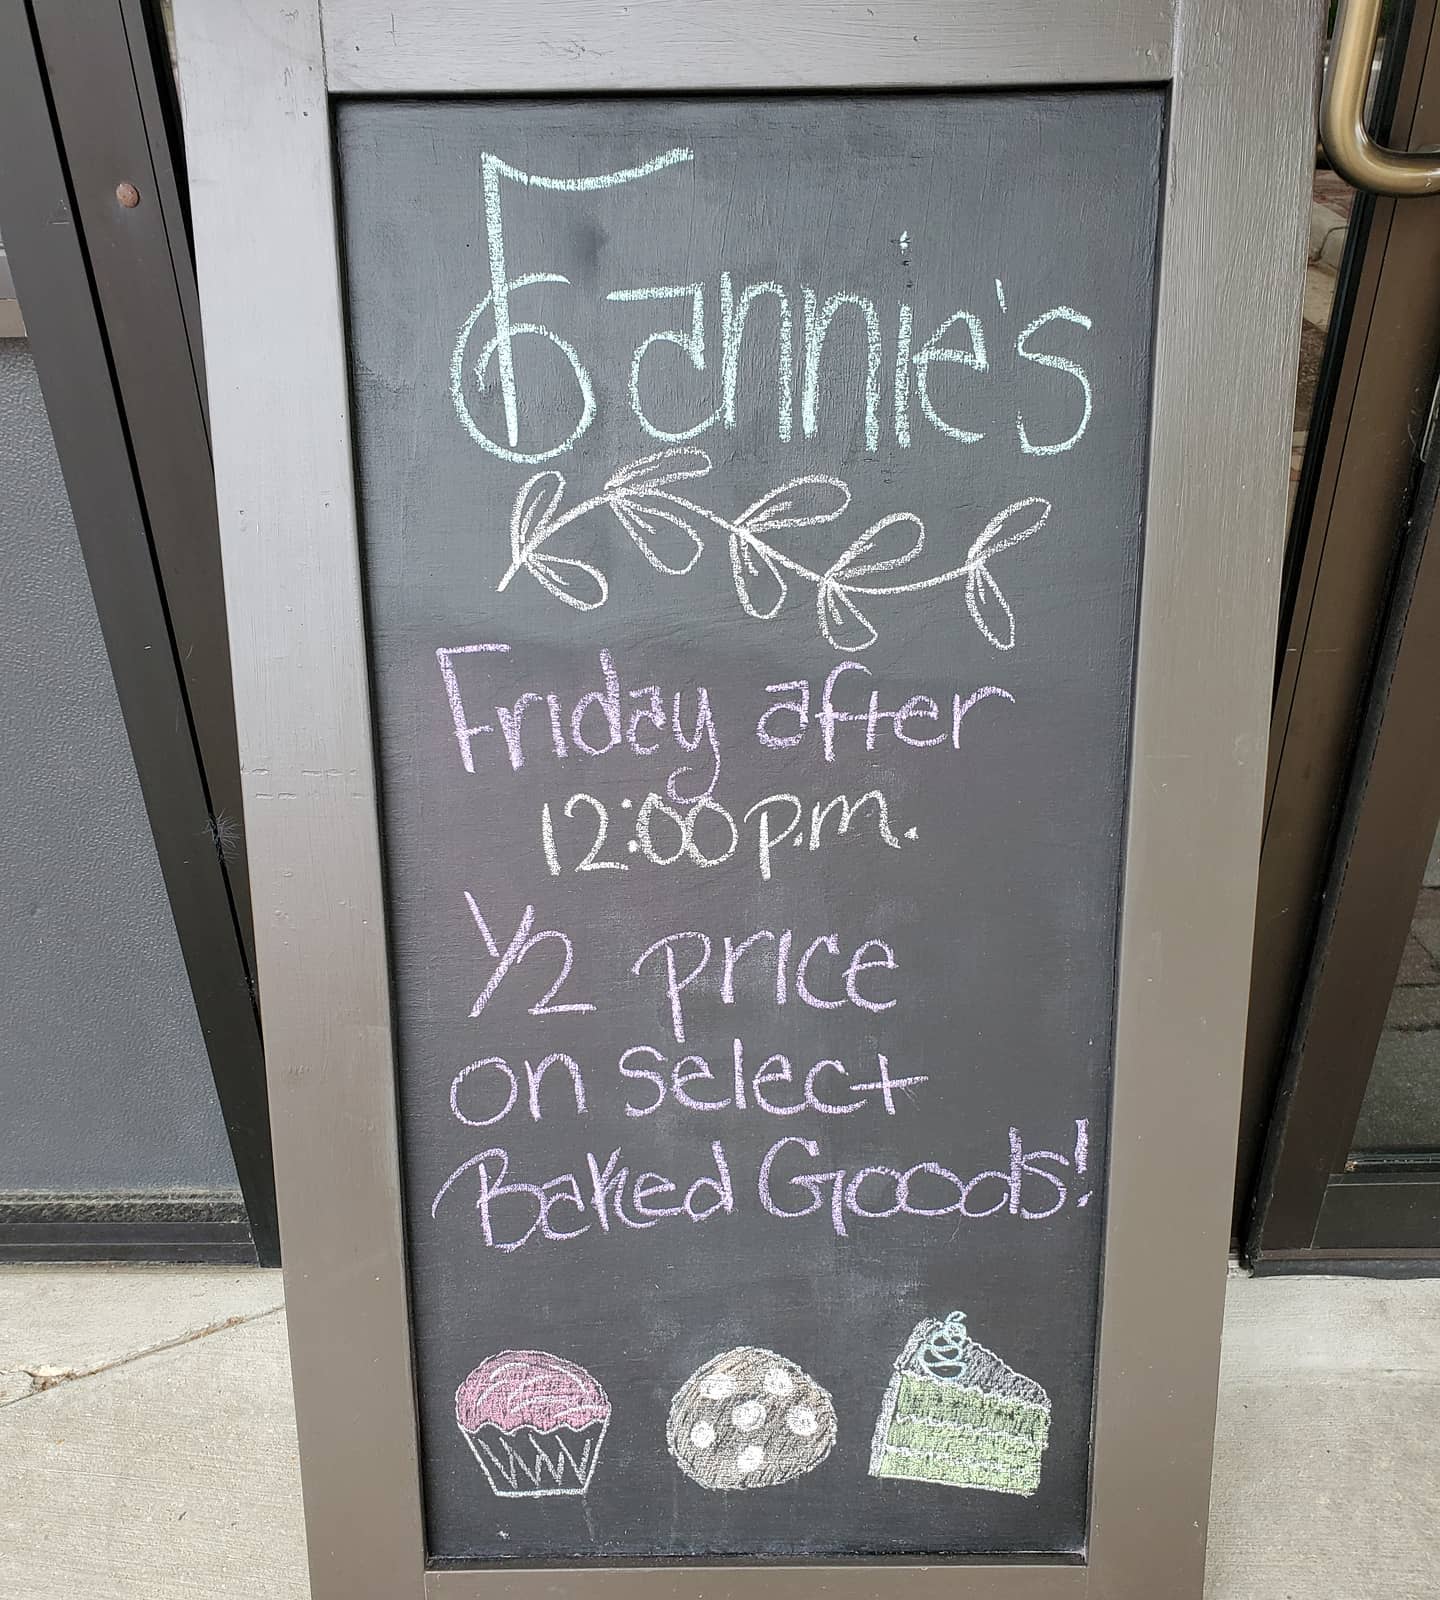 Fannie's
Friday after
12:00 p.m.
1/2 price
on select
Baked Goods!